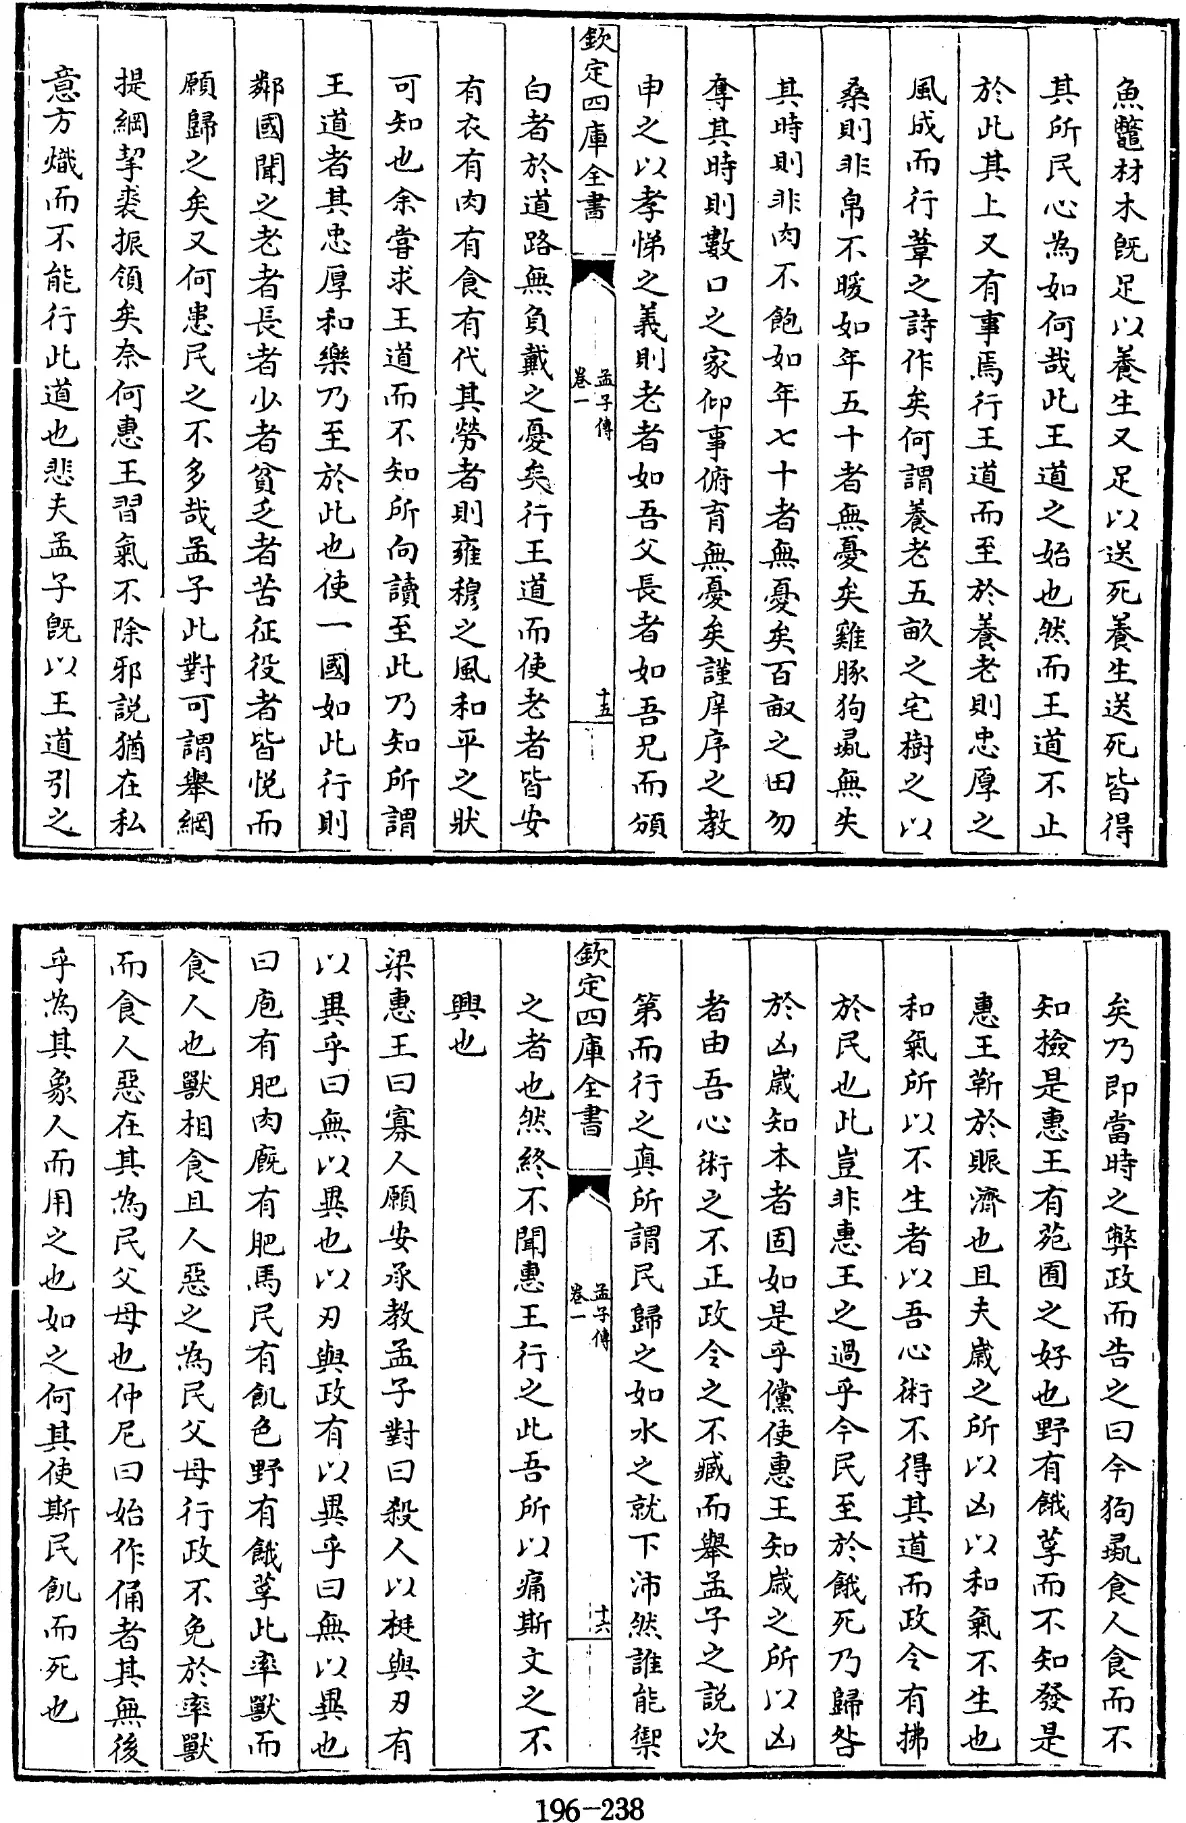 魚鼈材木旣足以養生又足以送死養生送死皆得
其所民心為如何哉此王道之始也然而王道不止
於此其上又有事焉行王道而至於養老則忠厚之
風成而行葦之詩作矣何謂養老五畝之宅樹之以
桑則非帛不暖如年五十者無憂矣雞豚狗彘無失
其時則非肉不飽如年七十者無憂矣百畝之田勿
奪其時則數口之家仰事俯育無憂矣謹庠序之教
申之以孝悌之義則老者如吾父長者如吾兄而頒
欽定四庫全書
孟子傳
卷一
十五
白者於道路無負戴之憂矣行王道而使老者皆安
有衣有肉有食有代其勞者則雍穆之風和平之狀
可知也余嘗求王道而不知所向讀至此乃知所謂
王道者其忠厚和樂乃至於此也使一國如此行則
鄰國聞之老者長者少者貧乏者苦征役者皆悅而
願歸之矣又何患民之不多哉孟子此對可謂舉網
提綱挈裘振領矣奈何惠王習氣不除邪說猶在私
意方熾而不能行此道也悲夫孟子旣以王道引之
矣乃即當時之弊政而告之曰今狗彘食人食而不
知檢是惠王有苑囿之好也野有餓莩而不知發是
惠王靳於賑濟也且夫歲之所以凶以和氣不生也
和氣所以不生者以吾心術不得其道而政令有拂
於民也此豈非惠王之過乎今民至於餓死乃歸咎
於凶歲知本者固如是乎儻使惠王知歲之所以凶
者由吾心術之不正政令之不臧而舉孟子之說次
第而行之真所謂民歸之如水之就下沛然誰能禦
欽定四庫全書
孟子傳
卷一
十六
之者也然終不聞惠王行之此吾所以痛斯文之不
興也
梁惠王曰寡人願安承教孟子對曰殺人以梃與刃有
以異乎曰無以異也以刃與政有以異乎曰無以異也
曰庖有肥肉廐有肥馬民有飢色野有餓莩此率獸而
食人也獸相食且人惡之為民父母行政不免於率獸
而食人惡在其為民父母也仲尼曰始作俑者其無後
乎為其象人而用之也如之何其使斯民飢而死也
196-238